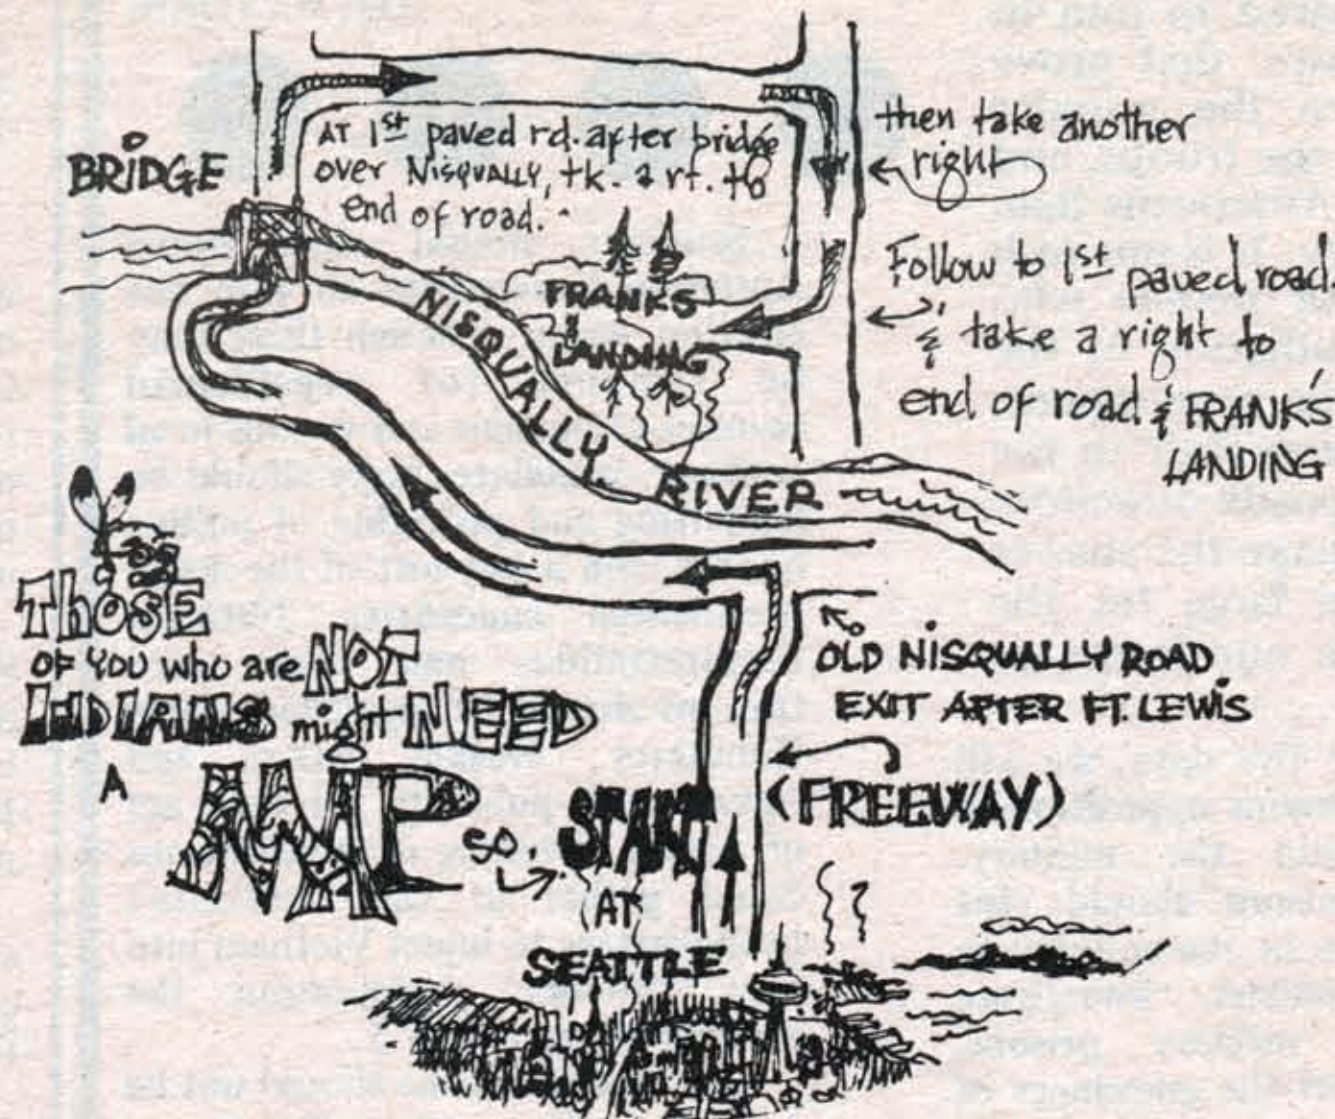 BRIDGE
AT 1st paved rd. after bridge
over NISQUALLY, tk. a rt. to
end of road.
then take another
right
Follow to 1st paved road.
& take a right to
end of road & FRANK'S
LANDING
FRANKS
LANDING
NISQUALLY RIVER
ThOSE
OF YOU who are NOT
INDIANS might NEED
A MAP so. START
AT
SEATTLE
OLD NISQUALLY ROAD
EXIT AFTER FT. LEWIS
(FREEWAY)